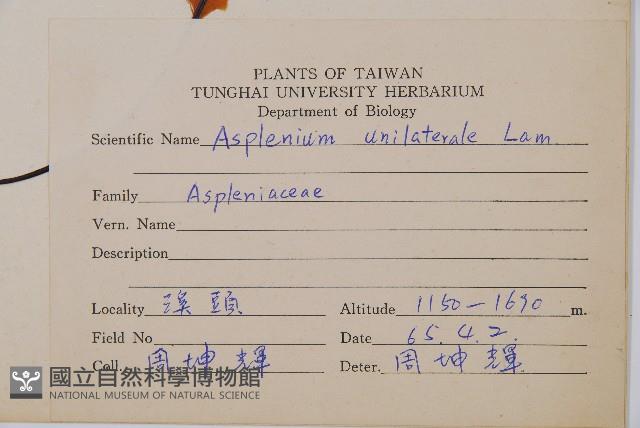 PLANTS OF TAIWAN
TUNGHAI UNIVERSITY HERBARIUM
Department of Biology
Scientific Name Asplenium unilaterale Lam.
Family Aspleniaceae
Vern. Name
Description
Locality 溪頭 Altitude 1150-1690 m.
Field No Date 65.4.2.
Coll. 周坤輝 Deter. 周坤輝
國立自然科學博物館
NATIONAL MUSEUM OF NATURAL SCIENCE